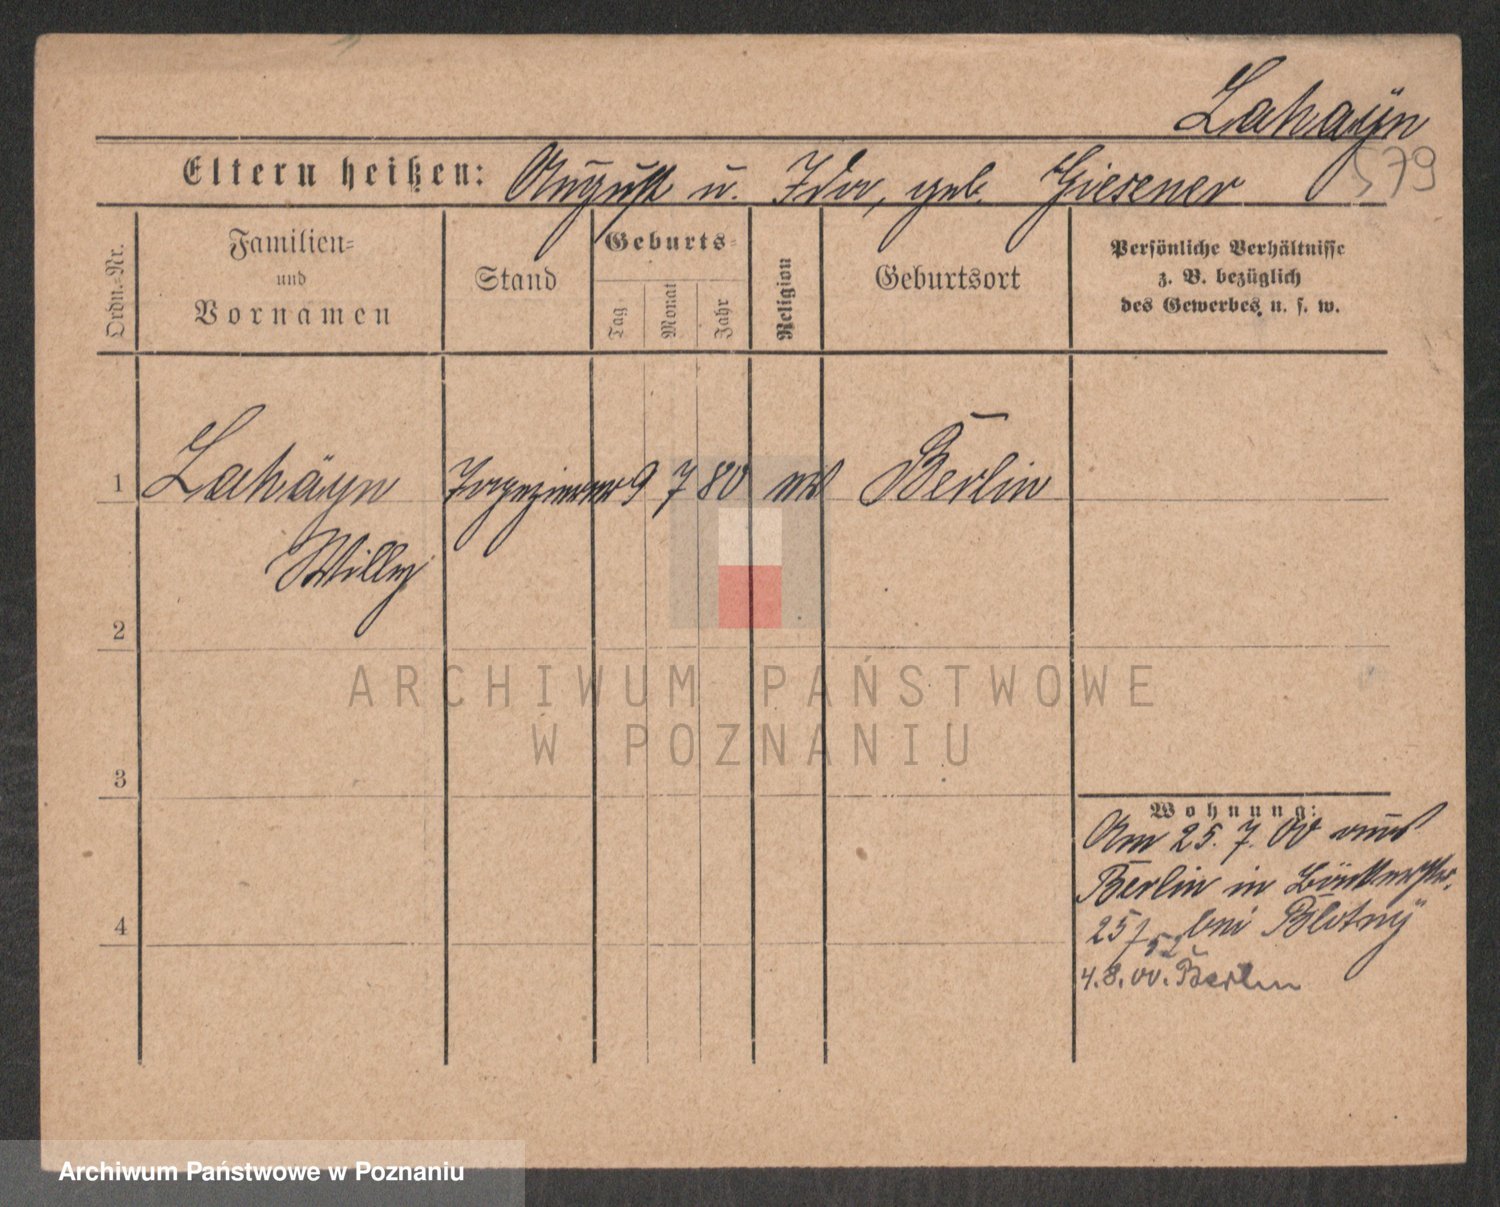 Lahaÿn
579
Eltern heißen: August u. Ida, geb. Giesener
Ordn.-Nr.
Familien-
und
Vornamen
Stand
Geburts-
Tag
Monat
Jahr
Religion
Geburtsort
Persönliche Verhältnisse
z. B. bezüglich
des Gewerbes u. s. w.
1 Lahäyn Tapezierer 9 7 80 ev Berlin
Willy
2
3
4
Wohnung:
Am 25. 7. 00 aus
Berlin in
25 bei Blotny
4. 8. 00. Berlin
ARCHIWUM PAŃSTWOWE
W POZNANIU
Archiwum Państwowe w Poznaniu